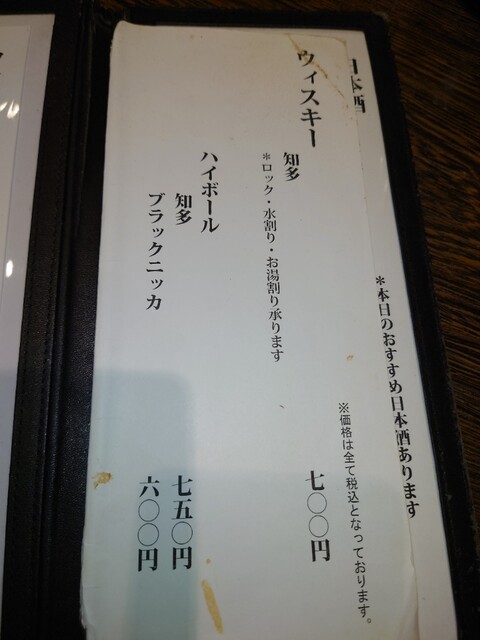 日本酒
＊本日のおすすめ日本酒あります
ウィスキー
※価格は全て税込となっております。
知多 七〇〇円
＊ロック・水割り・お湯割り承ります
ハイボール
知多 七五〇円
ブラックニッカ 六〇〇円